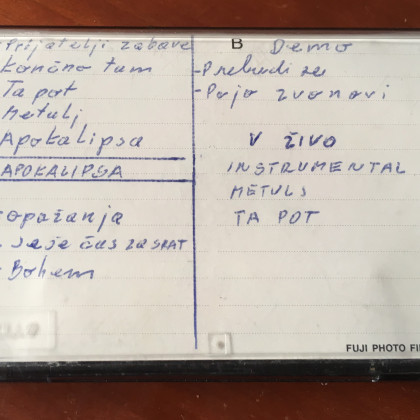 Prijatelji zabave
Končno tam
Ta pot
Metulj
Apokalipsa
APOKALIPSA
opažanja
čas za SRAT
Bohem
B Demo
-Prebudi se
-Pojo zvonovi
V ŽIVO
INSTRUMENTAL
METULJ
TA POT
FUJI PHOTO FI